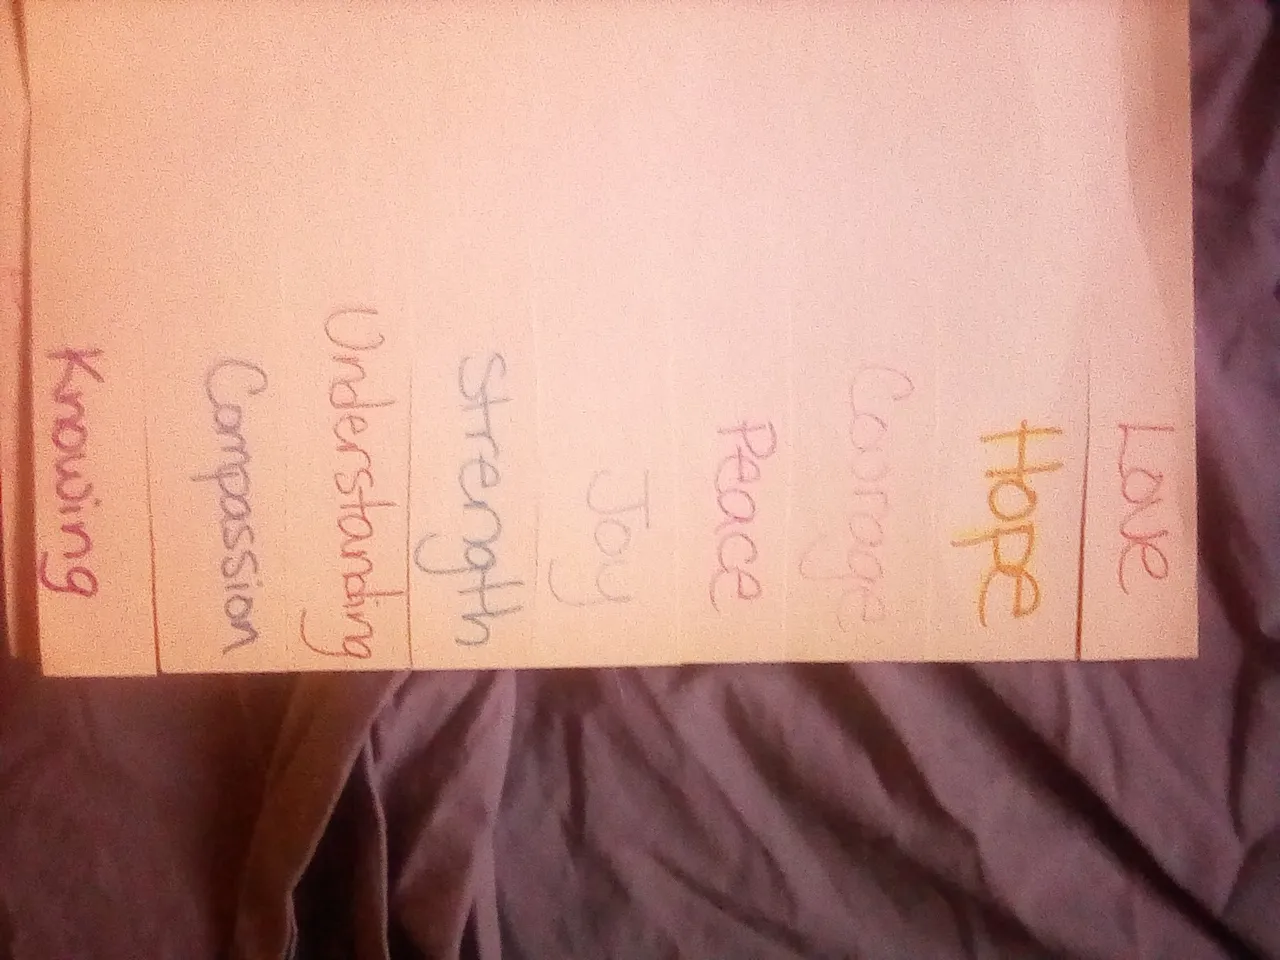 Love
Hope
Courage
Peace
Joy
Strength
Understanding
Compassion
Knowing